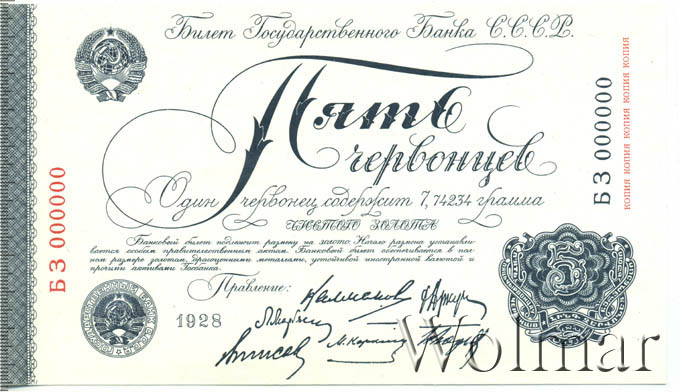 Билет Государственного Банка С.С.С.Р.
Пять
червонцев
Один червонец содержит 7,74234 грамма
ЧИСТОГО ЗОЛОТА
Банковый билет подлежит размену на золото. Начало размена устанавли-
вается особым правительственным актом. Банковый билет обеспечивается в пол-
ном размере золотом, драгоценными металлами, устойчивой иностранной валютой и
прочими активами Госбанка.
Правление:
1928
БЗ 000000
БЗ 000000
КОПИЯ КОПИЯ КОПИЯ КОПИЯ КОПИЯ
5
Wolmar